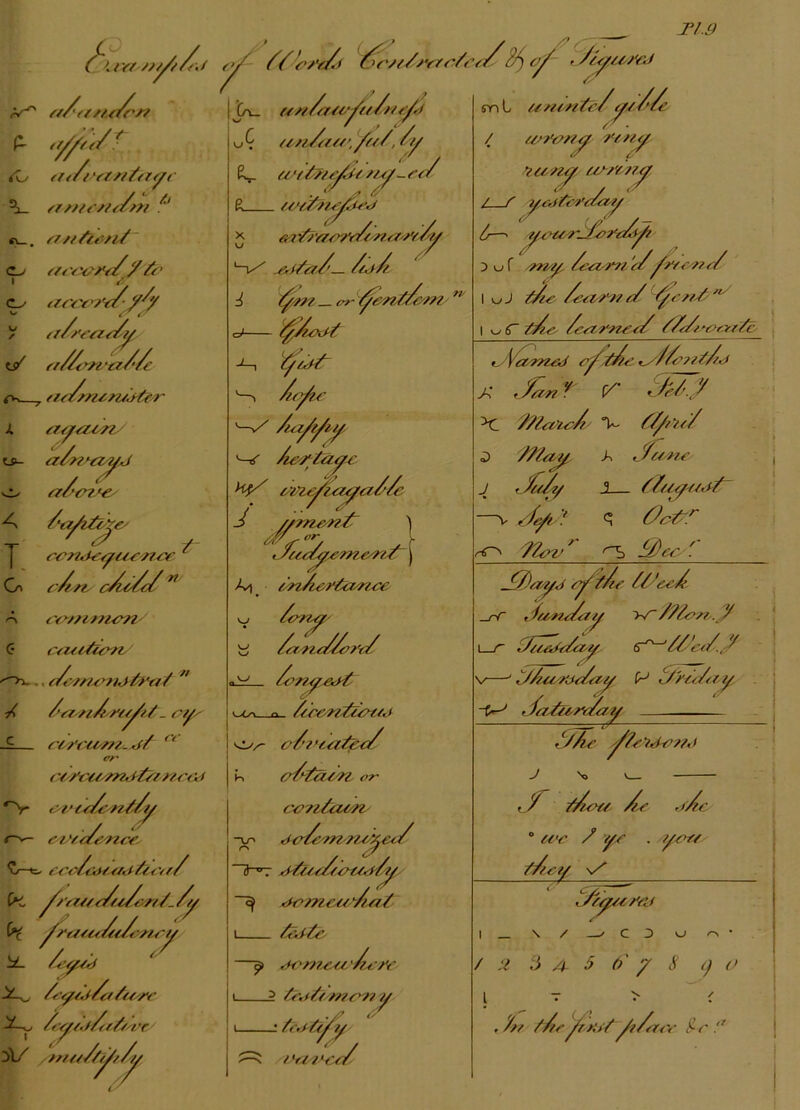 Pl.9
Examples of Words Contracted & of Figures
abandon
affid.t
advantage
amendm.ts
antient
accord.g to
accord.gly
already
allowable
administer
again
always
above
baptize
consequence
chn child
common
caution
demonstrat
bankrupt
circum.st
or
circumstances
evidently
evidence
ecclesiastical
fraudulent.ly
fraudulency
legis
legislature
legislative
multiply
unlawfulness
unlawful.ly
witnessing-ed
witnesses
extraordinarily
establish
gm or gentlem n
ghost
gist
hope
happy
heritage
inespagable
j pment
or
Judgement
inheritance
long
landlord
longest
licentious
obviated
obtain or
contain
solemnized
studiously
somewhat
teste
somewhere
testimony
testify
waved
unintel gible
wrong ring
rung wring
yesterday
your Lordsp
my learn'd friend
the learnd Gent n
the learned Advocate
Names of the Months
Jan.y Feb.y
March April
May June
July August
Sep.t Oct.r
Nov.r Dec.r
Days of the Week
Sunday Mon.y
Tuesday Wed.y
Thursday Friday
Saturday
The Persons
I thou he she
we / ye . you
they
Figures
1 2 3 4 5 6 7 8 9 0
In the first place &c